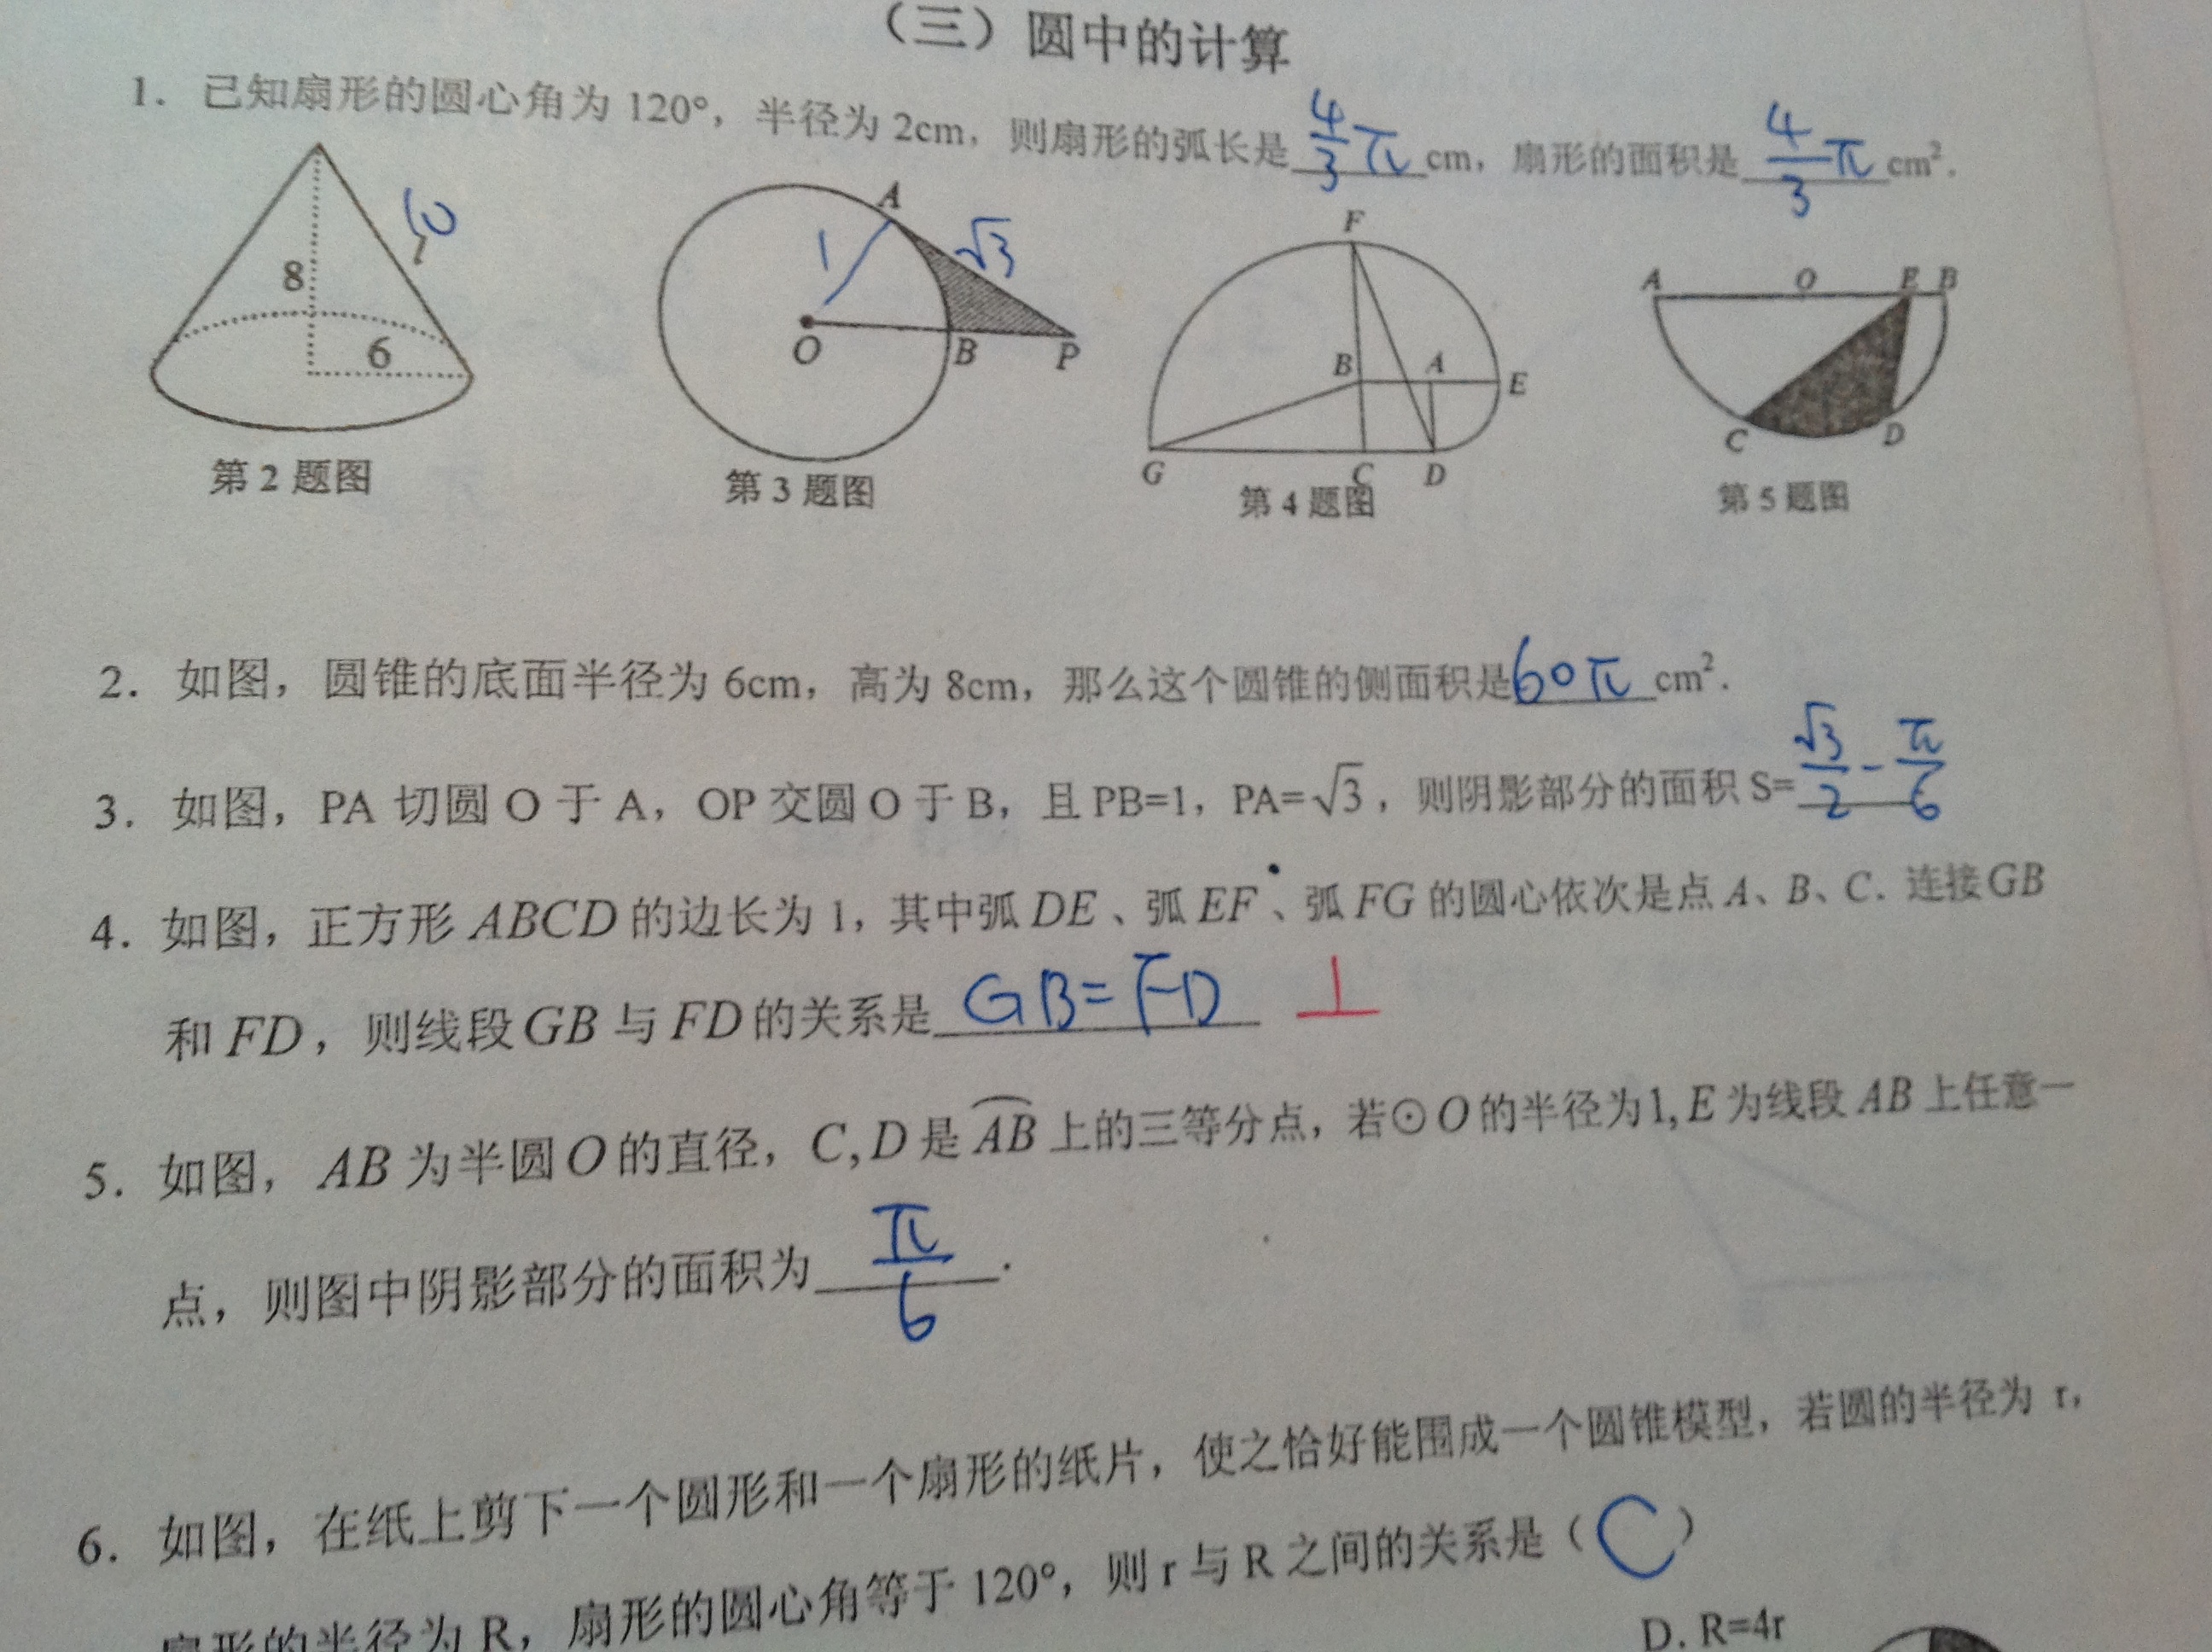 （三）圆中的计算
1. 已知扇形的圆心角为 120°，半径为 2cm，则扇形的弧长是 4/3 π cm，扇形的面积是 4/3 π cm².
8
6
10
第 2 题图
A
1
√3
O
B
P
第 3 题图
F
B
A
E
G
C
D
第 4 题图
A
O
E
B
C
D
第 5 题图
2. 如图，圆锥的底面半径为 6cm，高为 8cm，那么这个圆锥的侧面积是 60π cm².
3. 如图，PA 切圆 O 于 A，OP 交圆 O 于 B，且 PB=1，PA=√3，则阴影部分的面积 S= √3/2 - π/6
4. 如图，正方形 ABCD 的边长为 1，其中弧 DE、弧 EF、弧 FG 的圆心依次是点 A、B、C. 连接 GB
和 FD，则线段 GB 与 FD 的关系是 GB=FD ⊥
5. 如图，AB 为半圆 O 的直径，C,D 是 AB 上的三等分点，若⊙O 的半径为1,E 为线段 AB 上任意一
点，则图中阴影部分的面积为 π/6 .
6. 如图，在纸上剪下一个圆形和一个扇形的纸片，使之恰好能围成一个圆锥模型，若圆的半径为 r，
扇形的半径为 R，扇形的圆心角等于 120°，则 r 与 R 之间的关系是（ C ）
D. R=4r